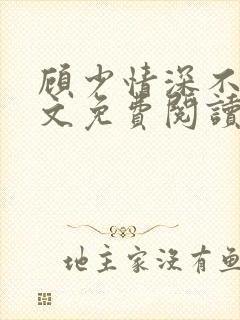 顾少情深不
文免費閱讀
地主家没有鱼